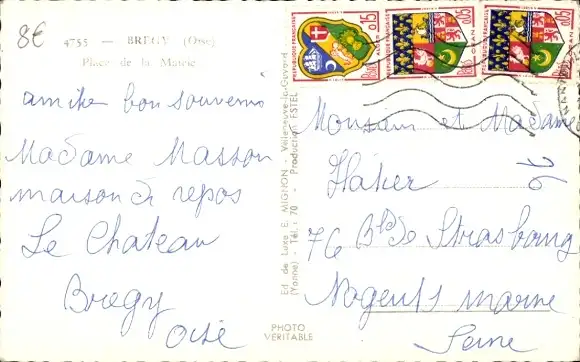 8€
4755 — BREGY (Oise)
Place de la Mairie
amitié bon souvenir
Madame Masson
maison de repos
Le Chateau
Bregy
Oise
Ed de Luxe E. MIGNON - Villeneuve-la-Guyard
(Yonne) - Tél. : 70 - Production ESTEL
PHOTO
VERITABLE
REPUBLIQUE FRANÇAISE
0,15
ALGER
REPUBLIQUE FRANÇAISE
0,05
ORAN
REPUBLIQUE FRANÇAISE
0,05
ORAN
Monsieur et Madame
76 Bld de Strasbourg
Nogent s/ marne
Seine